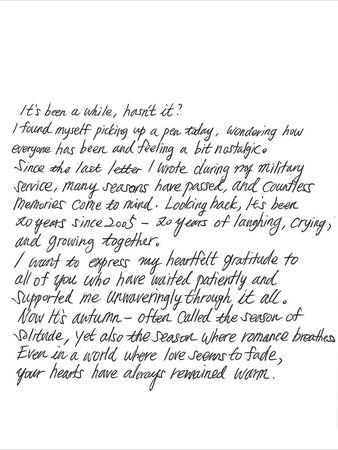 It's been a while, hasn't it?
I found myself picking up a pen today, wondering how
everyone has been and feeling a bit nostalgic.
Since the last letter I wrote during my military
service, many seasons have passed, and countless
memories come to mind. Looking back, It's been
20 years since 2005 – 20 years of laughing, crying,
and growing together.
I want to express my heartfelt gratitude to
all of you who have waited patiently and
supported me unwaveringly through it all.
Now It's autumn – often called the season of
solitude, yet also the season where romance breathes.
Even in a world where love seems to fade,
your hearts have always remained warm.